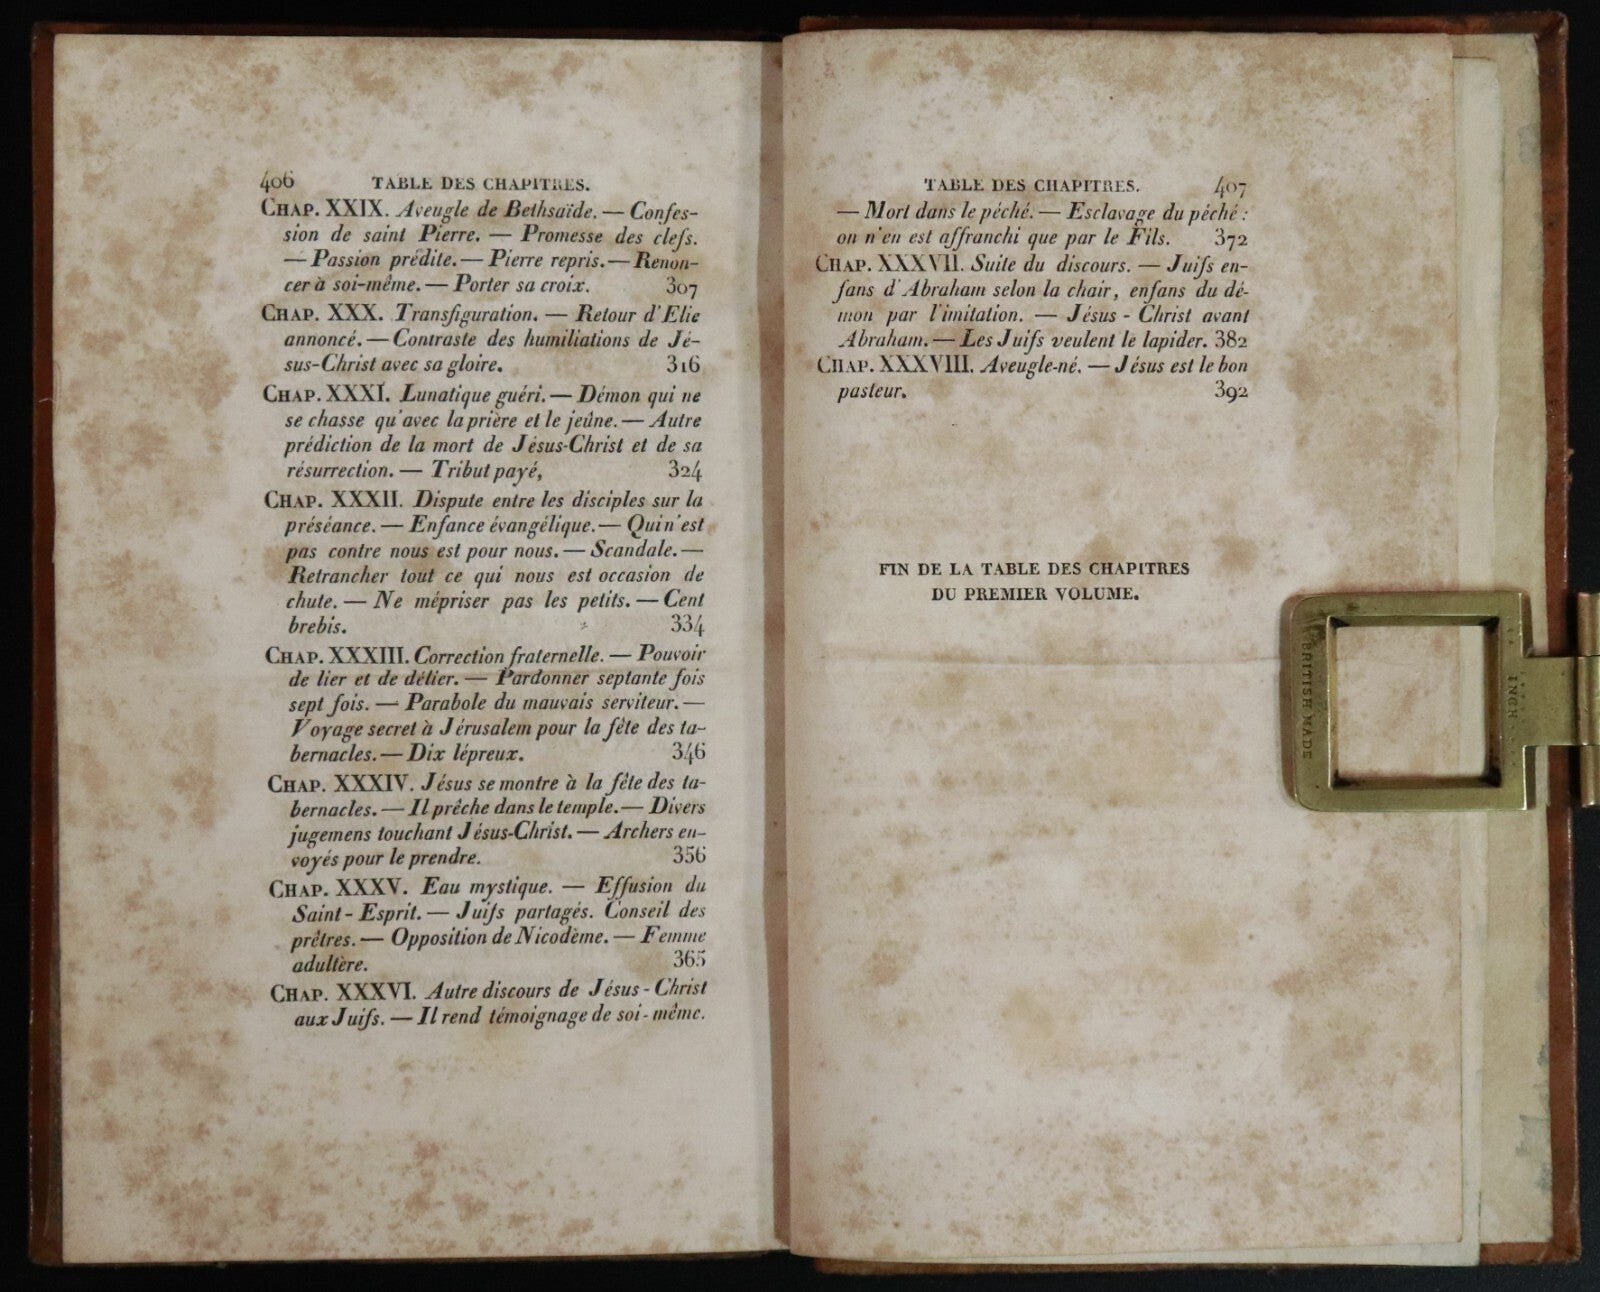 406 TABLE DES CHAPITRES.
CHAP. XXIX. Aveugle de Bethsaïde. — Confes-
sion de saint Pierre. — Promesse des clefs.
— Passion prédite. — Pierre repris. — Renon-
cer à soi-même. — Porter sa croix. 307
CHAP. XXX. Transfiguration. — Retour d'Elie
annoncé. — Contraste des humiliations de Jé-
sus-Christ avec sa gloire. 316
CHAP. XXXI. Lunatique guéri. — Démon qui ne
se chasse qu'avec la prière et le jeûne. — Autre
prédiction de la mort de Jésus-Christ et de sa
résurrection. — Tribut payé, 324
CHAP. XXXII. Dispute entre les disciples sur la
préséance. — Enfance évangélique. — Qui n'est
pas contre nous est pour nous. — Scandale. —
Retrancher tout ce qui nous est occasion de
chute. — Ne mépriser pas les petits. — Cent
brebis. 334
CHAP. XXXIII. Correction fraternelle. — Pouvoir
de lier et de délier. — Pardonner septante fois
sept fois. — Parabole du mauvais serviteur. —
Voyage secret à Jérusalem pour la fête des ta-
bernacles. — Dix lépreux. 346
CHAP. XXXIV. Jésus se montre à la fête des ta-
bernacles. — Il prêche dans le temple. — Divers
jugemens touchant Jésus-Christ. — Archers en-
voyés pour le prendre. 356
CHAP. XXXV. Eau mystique. — Effusion du
Saint-Esprit. — Juifs partagés. Conseil des
prêtres. — Opposition de Nicodème. — Femme
adultère. 365
CHAP. XXXVI. Autre discours de Jésus-Christ
aux Juifs. — Il rend témoignage de soi-même.
TABLE DES CHAPITRES. 407
— Mort dans le péché. — Esclavage du péché :
on n'en est affranchi que par le Fils. 372
CHAP. XXXVII. Suite du discours. — Juifs en-
fans d'Abraham selon la chair, enfans du dé-
mon par l'imitation. — Jésus-Christ avant
Abraham. — Les Juifs veulent le lapider. 382
CHAP. XXXVIII. Aveugle-né. — Jésus est le bon
pasteur. 392
FIN DE LA TABLE DES CHAPITRES
DU PREMIER VOLUME.
BRITISH MADE